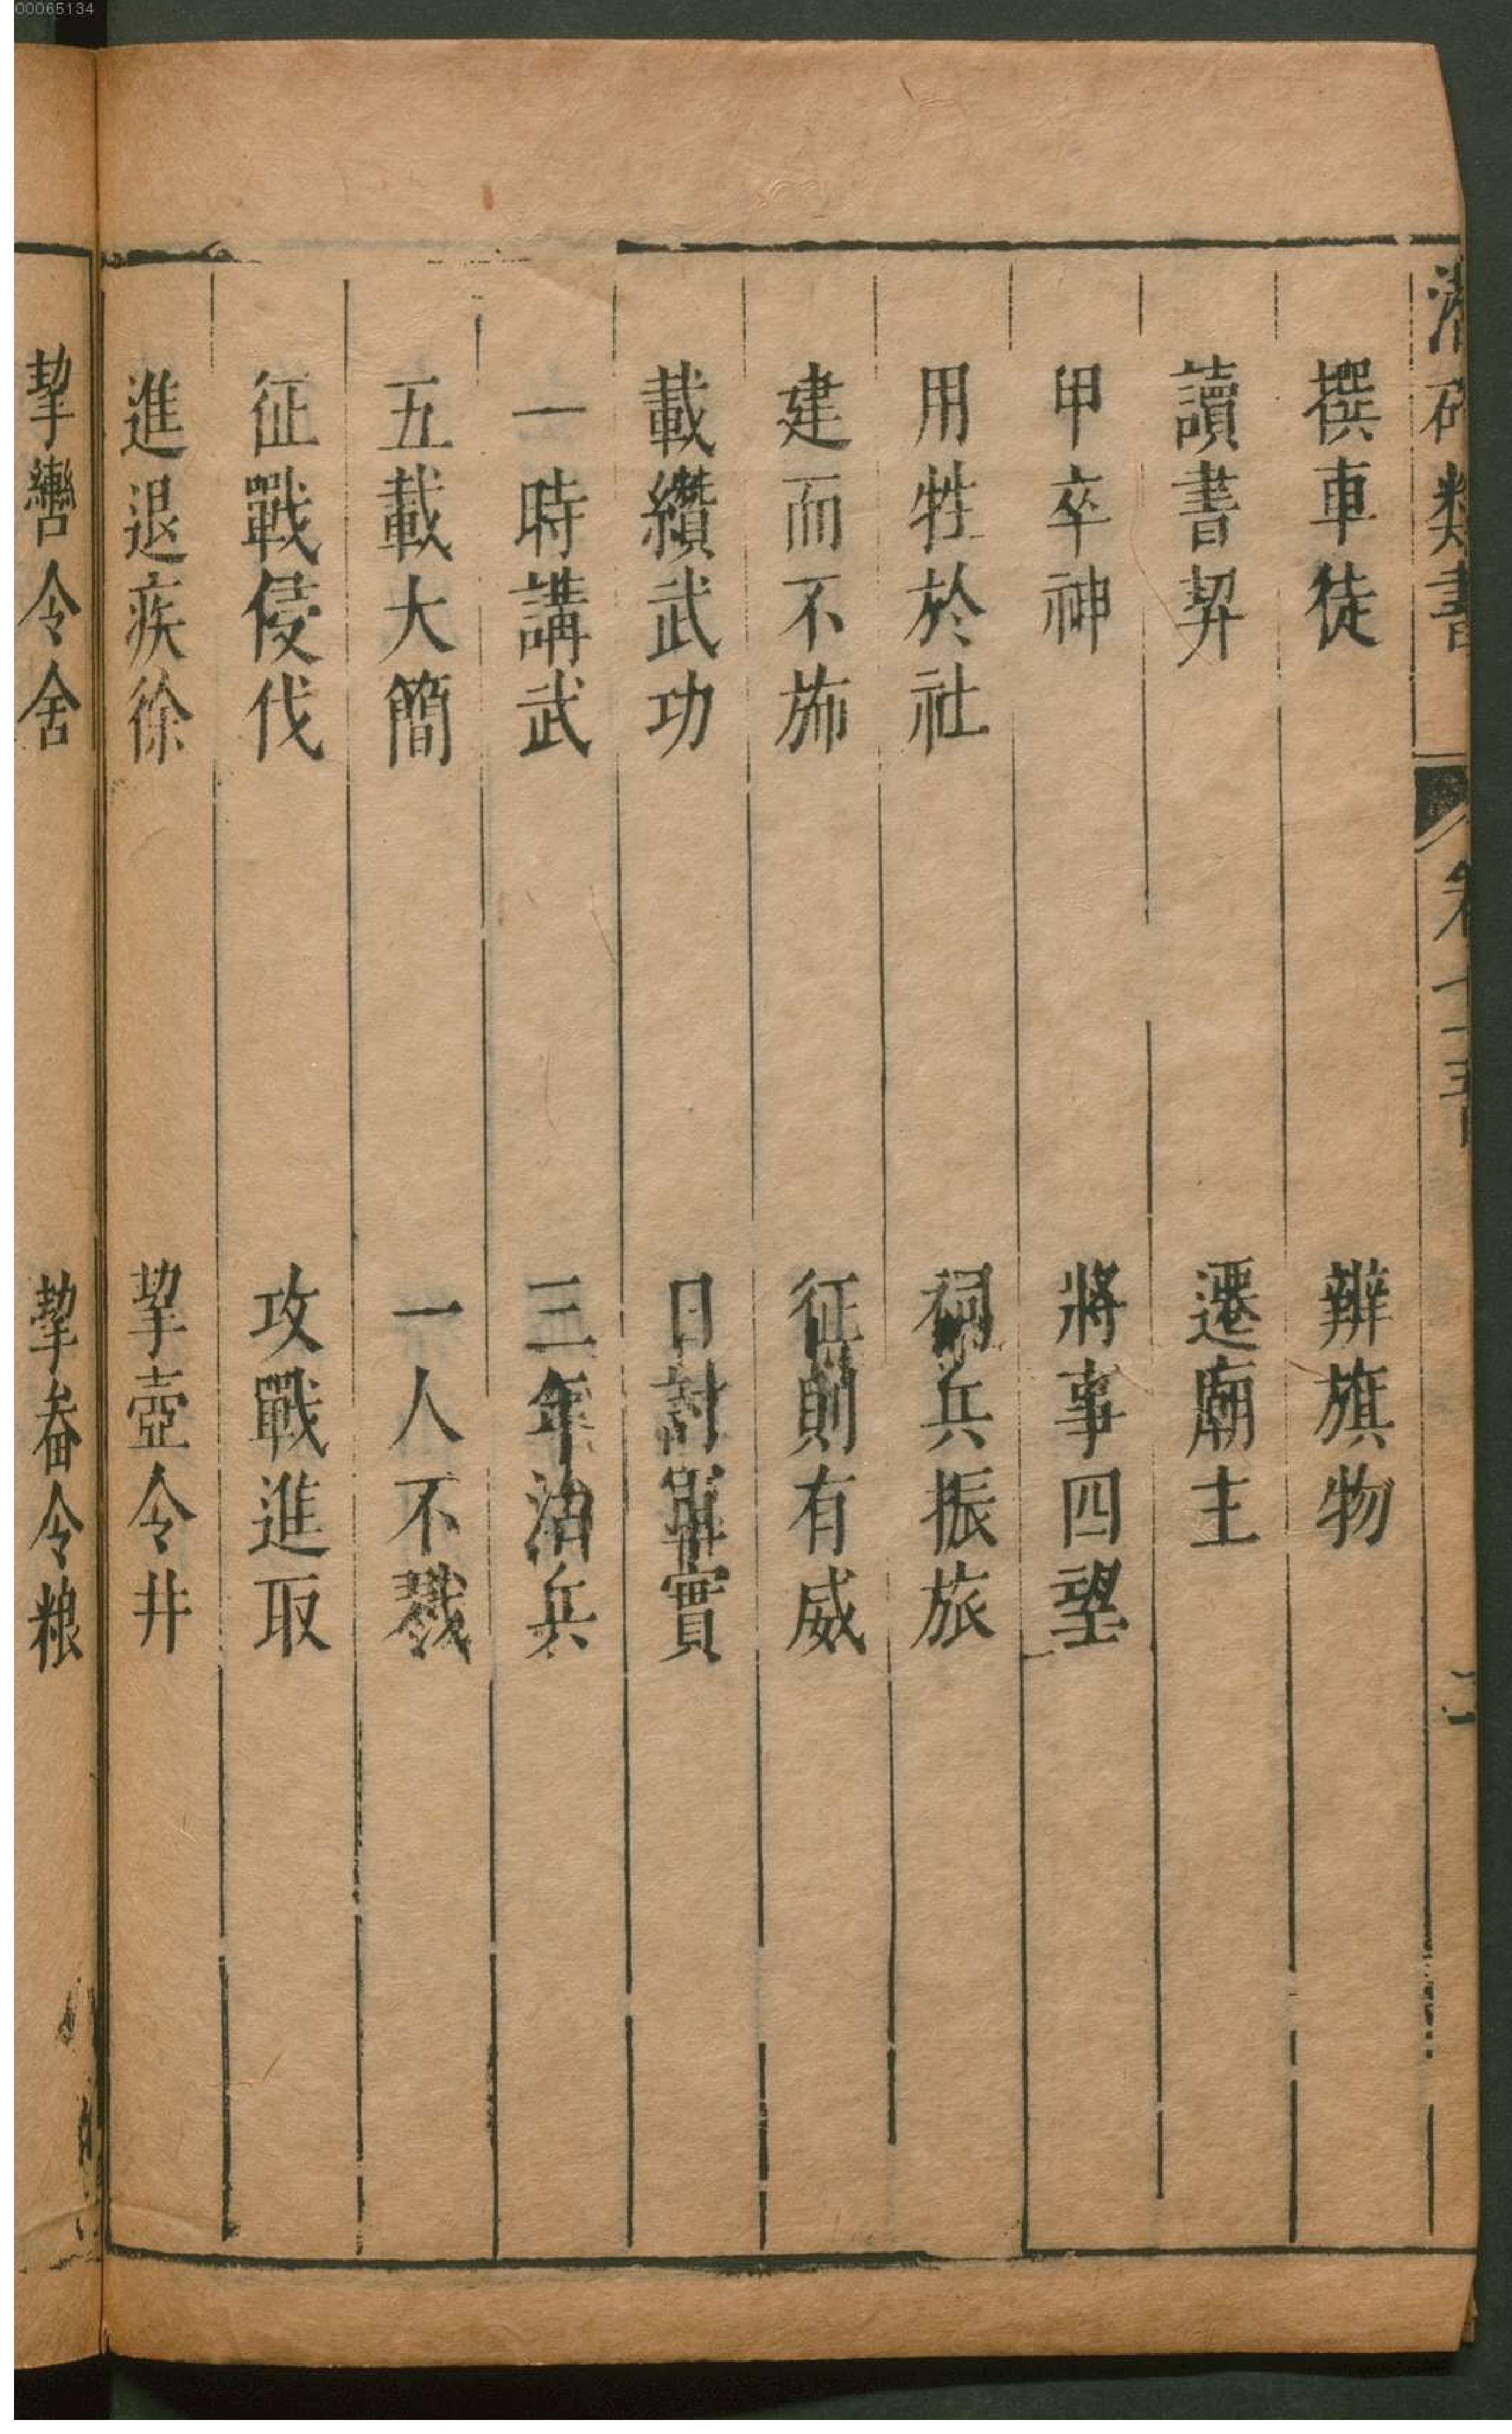 00065134
潛確類書 卷一百十五 二
撰車徒 辨旗物
讀書契 遷廟主
甲卒神 將事四望
用牲於社 祠兵振旅
建而不斾 征則有威
載纘武功 日討軍實
一時講武 三年治兵
五載大簡 一人不戮
征戰侵伐 攻戰進取
進退疾徐 挈壺令井
挈轡令舍 挈畚令粮